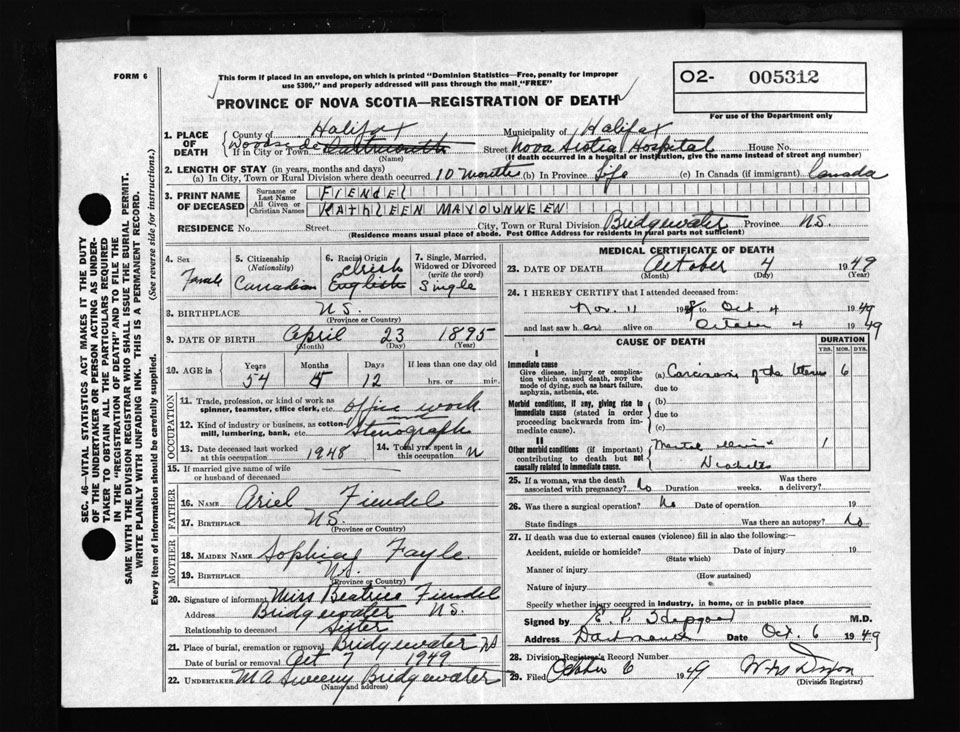 FORM 6
This form if placed in an envelope, on which is printed "Dominion Statistics—Free, penalty for improper
use $300," and properly addressed will pass through the mail "FREE"
O2- 005312
For use of the Department only
PROVINCE OF NOVA SCOTIA—REGISTRATION OF DEATH
SEC. 46—VITAL STATISTICS ACT MAKES IT THE DUTY
OF THE UNDERTAKER OR PERSON ACTING AS UNDER-
TAKER TO OBTAIN ALL THE PARTICULARS REQUIRED
IN THE "REGISTRATION OF DEATH" AND TO FILE THE
SAME WITH THE DIVISION REGISTRAR WHO SHALL ISSUE THE BURIAL PERMIT.
WRITE PLAINLY WITH UNFADING INK. THIS IS A PERMANENT RECORD.
Every item of information should be carefully supplied. (See reverse side for instructions.)
1. PLACE OF DEATH County of Halifax Municipality of Halifax
Woodside If in City or Town Dartmouth (Name) Street Nova Scotia Hospital House No.
(If death occurred in a hospital or institution, give the name instead of street and number)
2. LENGTH OF STAY (in years, months and days)
(a) In City, Town or Rural Division where death occurred 10 months (b) In Province Life (c) In Canada (if immigrant) Canada
3. PRINT NAME OF DECEASED Surname or Last Name FIENDEL
All Given or Christian Names KATHLEEN MAVOUNWEEN
RESIDENCE No. Street City, Town or Rural Division Bridgewater Province N.S.
(Residence means usual place of abode. Post Office Address for residents in rural parts not sufficient)
4. Sex Female
5. Citizenship (Nationality) Canadian
6. Racial Origin Irish English
7. Single, Married, Widowed or Divorced (write the word) Single
8. BIRTHPLACE N.S.
(Province or Country)
9. DATE OF BIRTH April 23 1895
(Month) (Day) (Year)
10. AGE in Years 54 Months 5 Days 12 If less than one day old hrs. or min.
OCCUPATION
11. Trade, profession or kind of work as spinner, teamster, office clerk, etc. Office work
12. Kind of industry or business, as cotton-mill, lumbering, bank, etc. Stenograph
13. Date deceased last worked at this occupation 1948 14. Total yrs. spent in this occupation
15. If married give name of wife or husband of deceased
FATHER
16. NAME Ariel Fiendel
17. BIRTHPLACE N.S.
(Province or Country)
MOTHER
18. MAIDEN NAME Sophia Fayle
19. BIRTHPLACE N.S.
(Province or Country)
20. Signature of informant Miss Beatrice Fiendel
Address Bridgewater N.S.
Relationship to deceased Sister
21. Place of burial, cremation or removal Bridgewater NS
Date of burial or removal Oct 7 1949
22. UNDERTAKER M A Sweeny Bridgewater
(Name and address)
MEDICAL CERTIFICATE OF DEATH
23. DATE OF DEATH October 4 1949
(Month) (Day) (Year)
24. I HEREBY CERTIFY that I attended deceased from:
Nov. 11 1948 to Oct. 4 1949
and last saw her alive on October 4 1949
CAUSE OF DEATH DURATION
YRS. MOS. DYS.
I
Immediate cause
Give disease, injury or complication which caused death, NOT the mode of dying, such as heart failure, asphyxia, asthenia, etc.
(a) Carcinoma of the Uterus 6
due to
Morbid conditions, if any, giving rise to immediate cause (stated in order proceeding backwards from immediate cause).
(b)
due to
(c)
II
Other morbid conditions (if important) contributing to death but not causally related to immediate cause.
Mental 1
Diabetes
25. If a woman, was the death associated with pregnancy? No Duration weeks. Was there a delivery?
26. Was there a surgical operation? No Date of operation 19
State findings Was there an autopsy? No
27. If death was due to external causes (violence) fill in also the following:
Accident, suicide or homicide? Date of injury 19
(State which)
Manner of injury
(How sustained)
Nature of injury
Specify whether injury occurred in industry, in home, or in public place
Signed by M.D.
Address Dartmouth Date Oct. 6 1949
28. Division Registrar's Record Number
29. Filed October 6 1949
(Division Registrar)